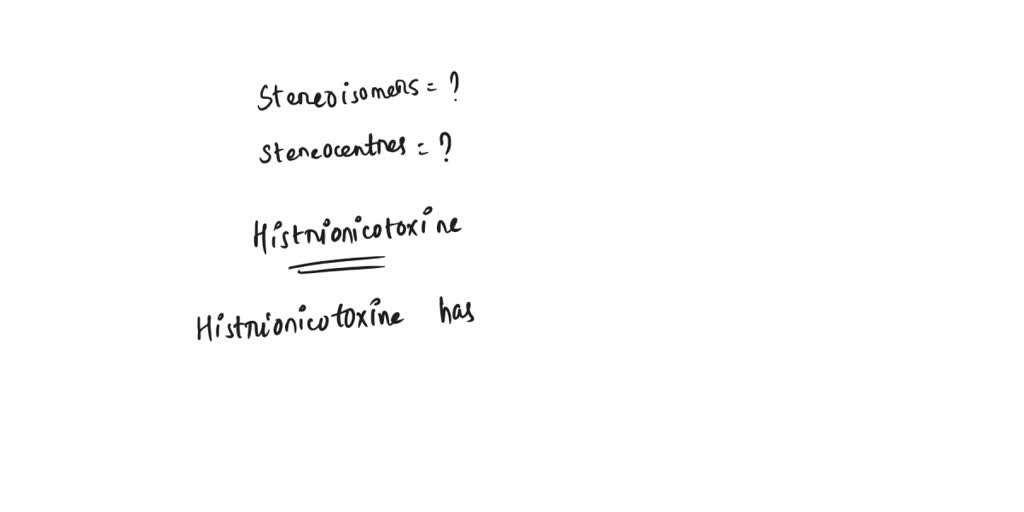 Stereoisomers = ?
Stereocentres = ?
Histrionicotoxine
Histrionicotoxine has